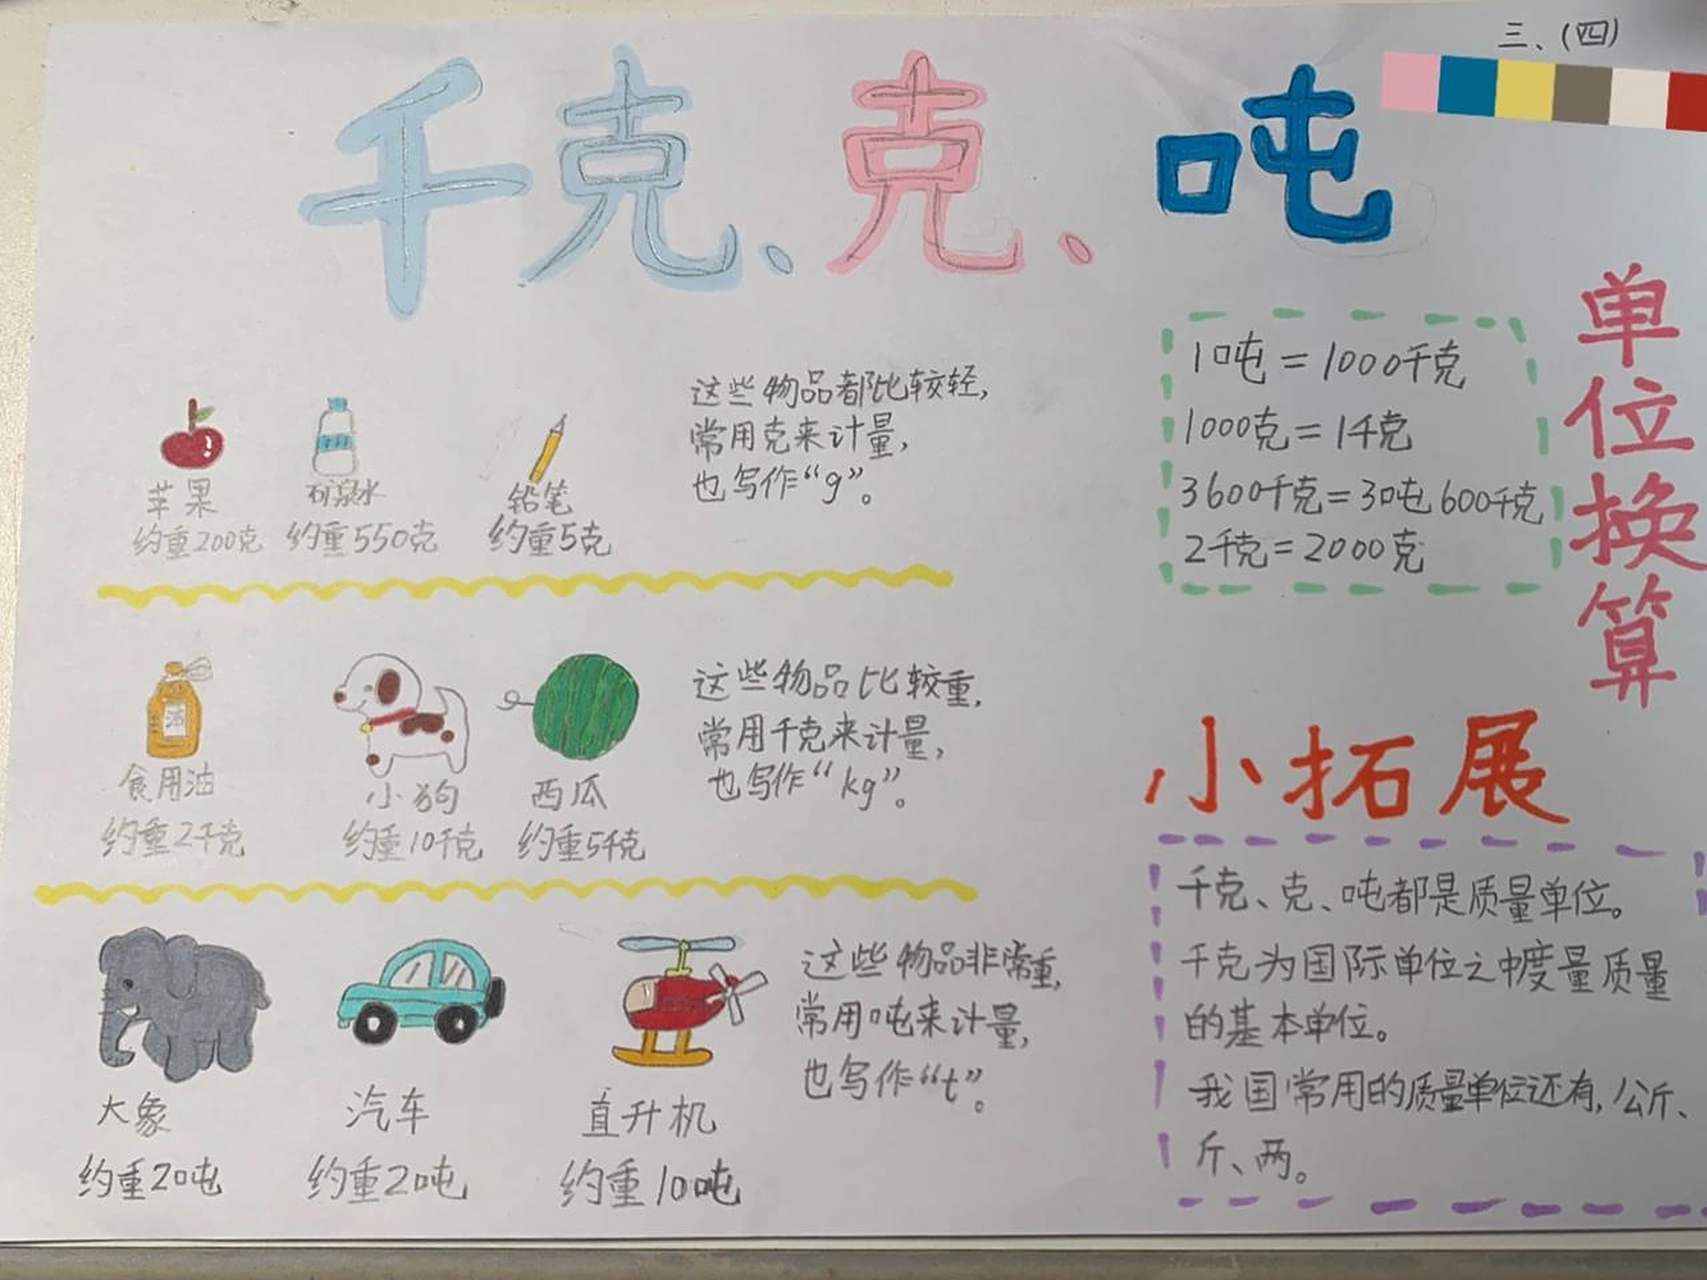 三、(四)
千克、克、吨
苹果
约重200克
矿泉水
约重550克
铅笔
约重5克
这些物品都比较轻,
常用克来计量,
也写作“g”。
食用油
约重2千克
小狗
约重10千克
西瓜
约重5千克
这些物品比较重,
常用千克来计量,
也写作“kg”。
大象
约重2吨
汽车
约重2吨
直升机
约重10吨
这些物品非常重,
常用吨来计量,
也写作“t”。
单位换算
1吨=1000千克
1000克=1千克
3600千克=3吨600千克
2千克=2000克
小拓展
千克、克、吨都是质量单位。
千克为国际单位之中度量质量
的基本单位。
我国常用的质量单位还有,公斤、
斤、两。
油